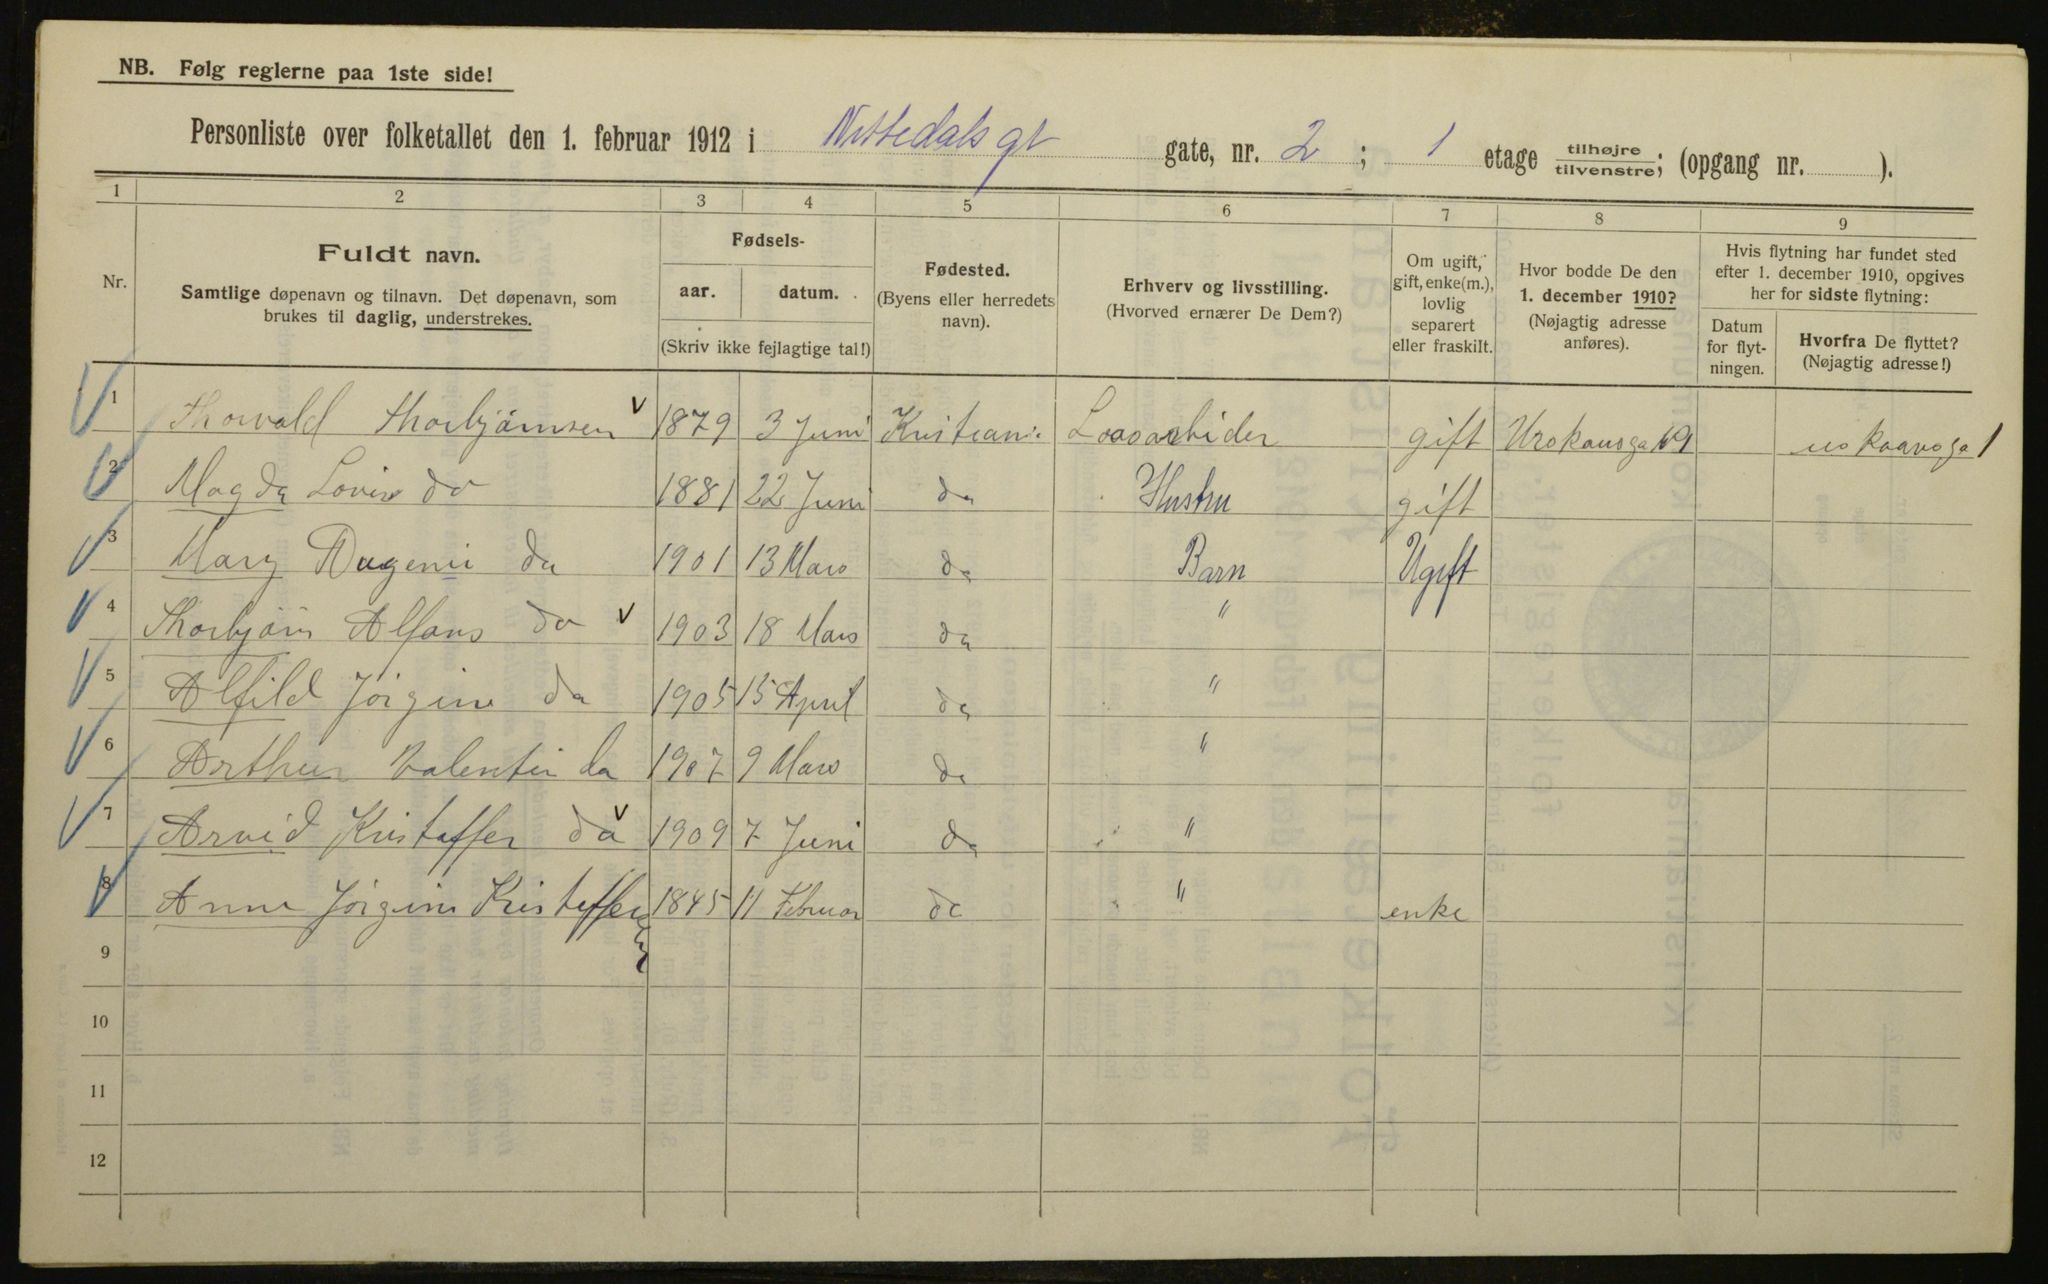 NB. Følg reglerne paa 1ste side!
Personliste over folketallet den 1. februar 1912 i Nittedals gt gate, nr. 2; 1 etage tilhøjre / tilvenstre; (opgang nr. ).
1 2 3 4 5 6 7 8 9
Nr.
Fuldt navn.
Samtlige døpenavn og tilnavn. Det døpenavn, som
brukes til daglig, understrekes.
Fødsels-
aar. datum.
(Skriv ikke fejlagtige tal!)
Fødested.
(Byens eller herredets
navn).
Erhverv og livsstilling.
(Hvorved ernærer De Dem?)
Om ugift,
gift, enke(m.),
lovlig
separert
eller fraskilt.
Hvor bodde De den
1. december 1910?
(Nøjagtig adresse
anføres).
Hvis flytning har fundet sted
efter 1. december 1910, opgives
her for sidste flytning:
Datum
for flyt-
ningen.
Hvorfra De flyttet?
(Nøjagtig adresse!)
1 Thorvald Thorbjørnsen 1879 3 Juni Kristiania gift
2 Magda Lovise do 1881 22 Juni da Hustru gift
3 Mary da 1901 13 Mars da Barn Ugift
4 Thorbjørn Alfons do 1903 18 Mars da "
5 Alfild Jørgine da 1905 15 April da "
6 Arthur Valentin da 1907 9 Mars da "
7 Arvid Kristoffer da 1909 7 Juni da "
8 Anne Jørgine Kristoffersen 1845 11 Februar da " enke
9
10
11
12